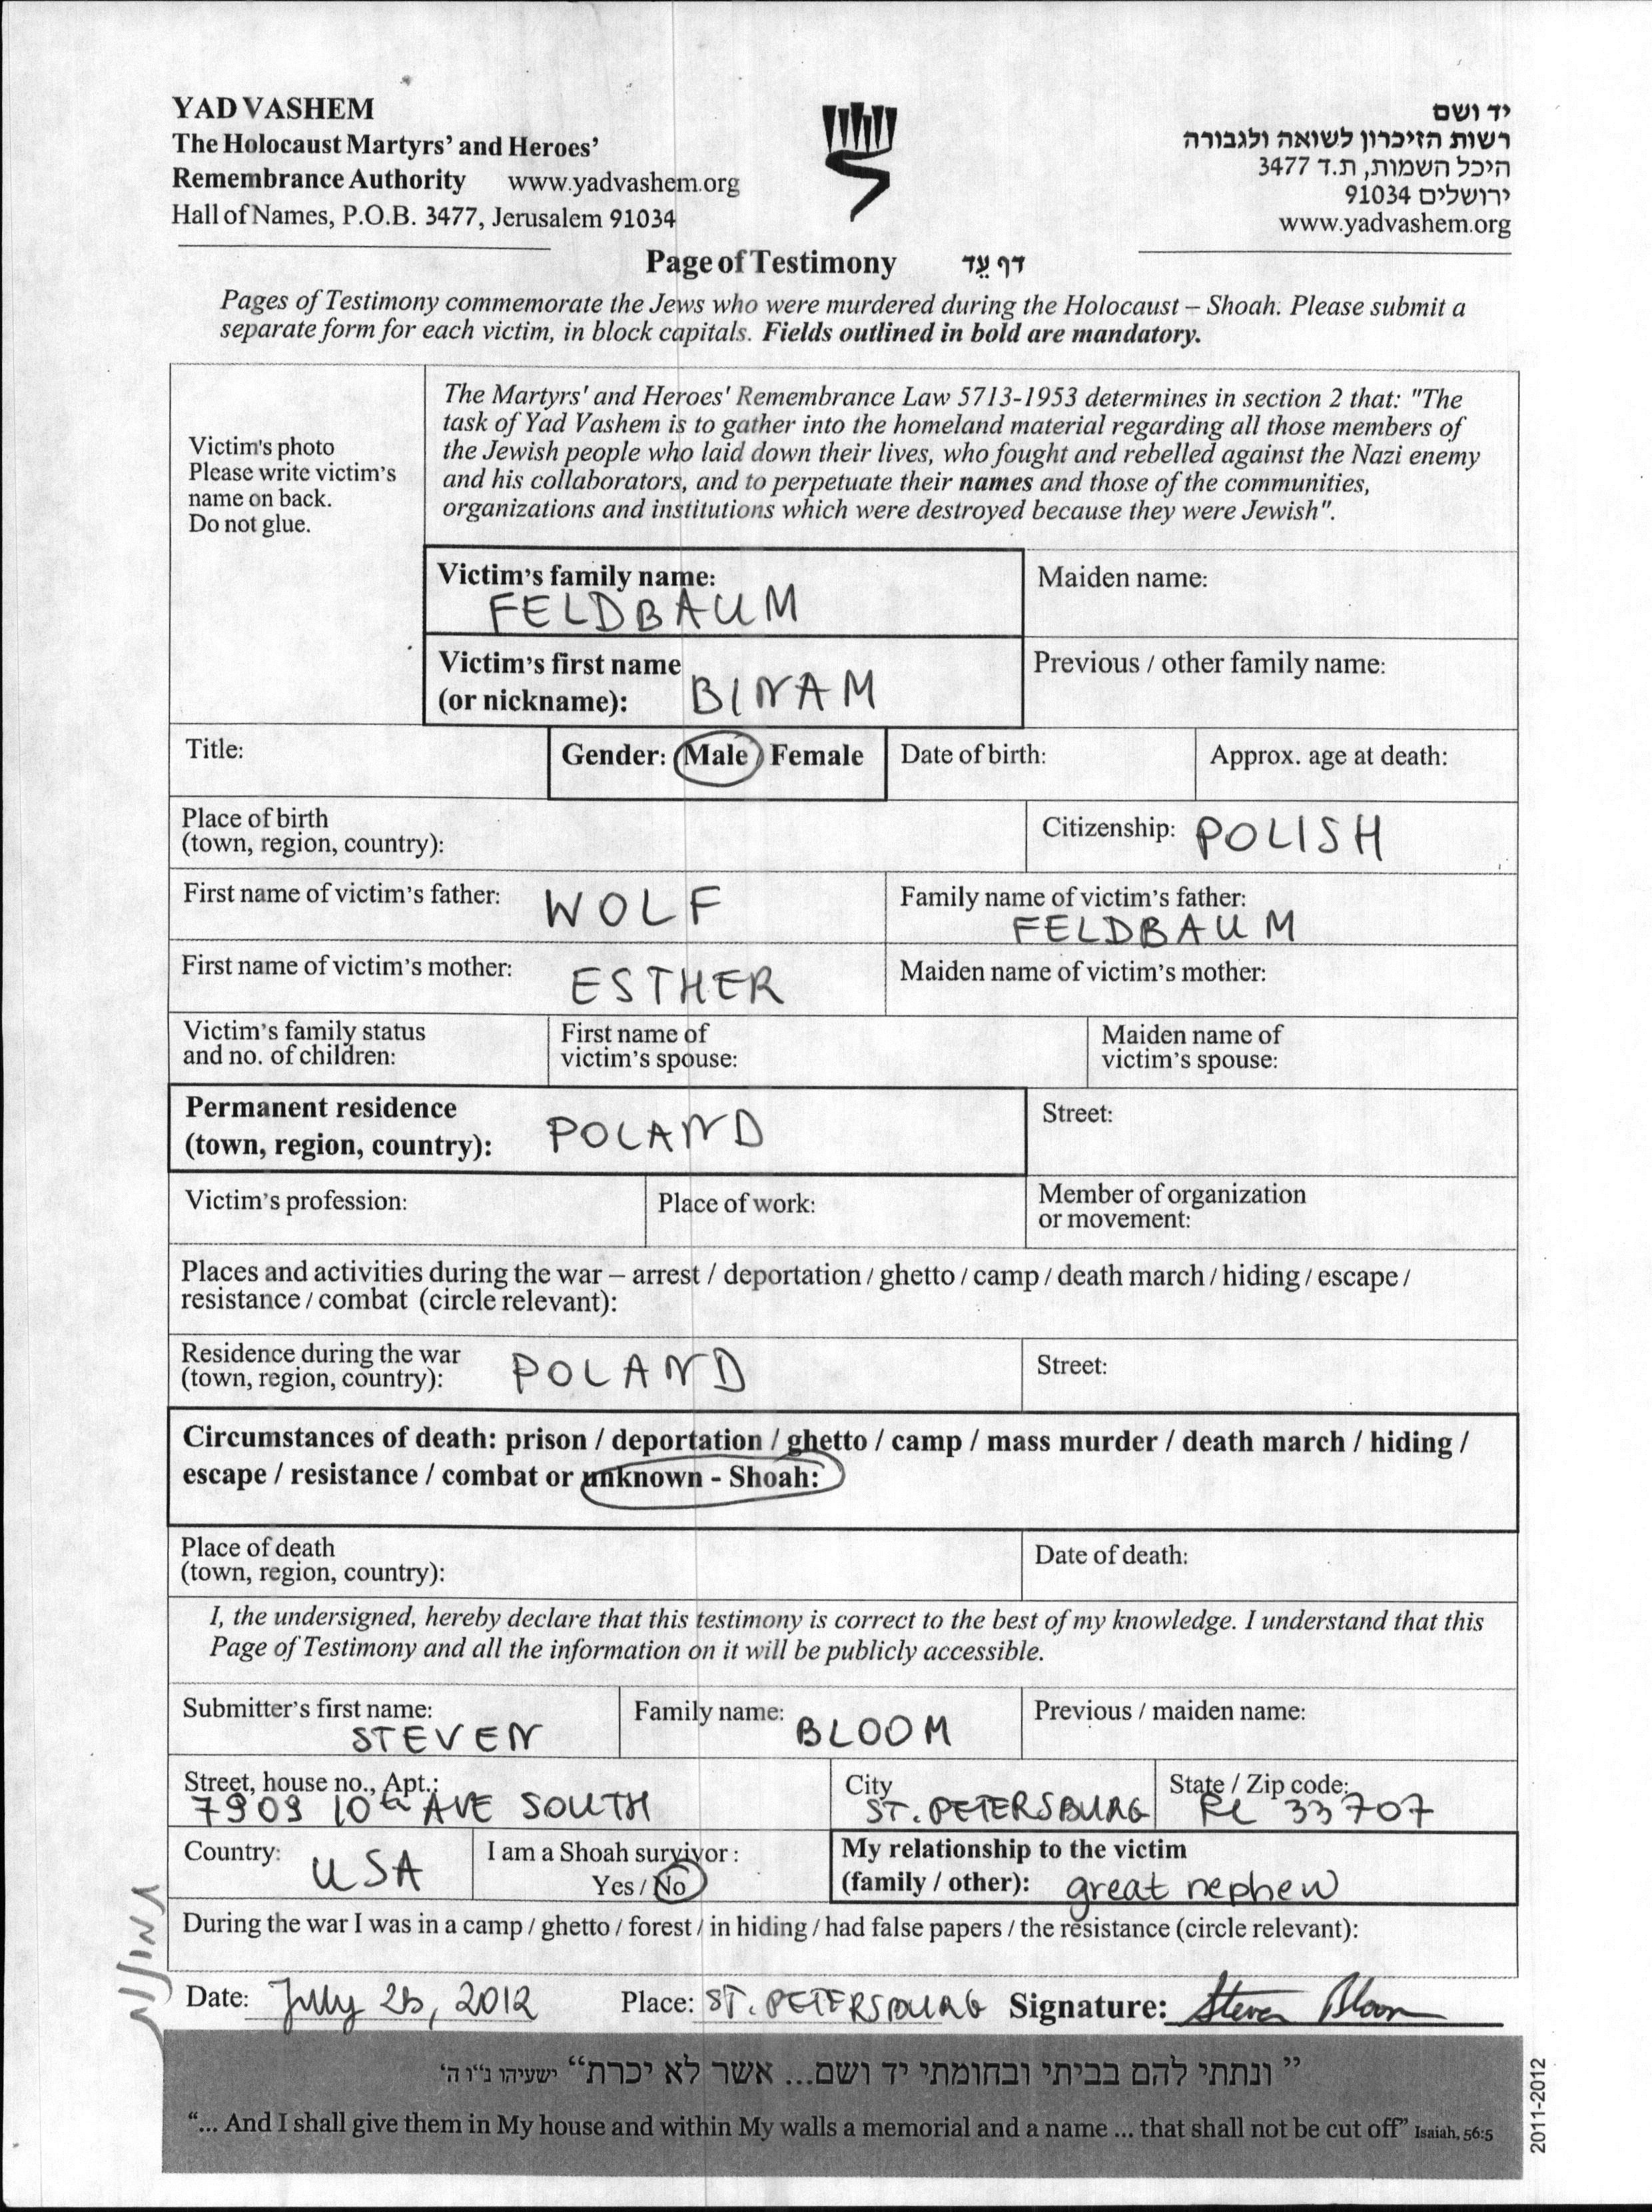 YAD VASHEM
The Holocaust Martyrs' and Heroes'
Remembrance Authority www.yadvashem.org
Hall of Names, P.O.B. 3477, Jerusalem 91034
יד ושם
רשות הזיכרון לשואה ולגבורה
היכל השמות, ת.ד 3477
ירושלים 91034
www.yadvashem.org
Page of Testimony דף עֵד
Pages of Testimony commemorate the Jews who were murdered during the Holocaust – Shoah. Please submit a
separate form for each victim, in block capitals. Fields outlined in bold are mandatory.
Victim's photo
Please write victim's
name on back.
Do not glue.
The Martyrs' and Heroes' Remembrance Law 5713-1953 determines in section 2 that: "The
task of Yad Vashem is to gather into the homeland material regarding all those members of
the Jewish people who laid down their lives, who fought and rebelled against the Nazi enemy
and his collaborators, and to perpetuate their names and those of the communities,
organizations and institutions which were destroyed because they were Jewish".
Victim's family name:
FELDBAUM
Maiden name:
Victim's first name
(or nickname): BINAM
Previous / other family name:
Title: Gender: Male Female Date of birth: Approx. age at death:
Place of birth
(town, region, country):
Citizenship: POLISH
First name of victim's father: WOLF
Family name of victim's father:
FELDBAUM
First name of victim's mother: ESTHER
Maiden name of victim's mother:
Victim's family status
and no. of children:
First name of
victim's spouse:
Maiden name of
victim's spouse:
Permanent residence
(town, region, country): POLAND
Street:
Victim's profession: Place of work:
Member of organization
or movement:
Places and activities during the war – arrest / deportation / ghetto / camp / death march / hiding / escape /
resistance / combat (circle relevant):
Residence during the war
(town, region, country): POLAND
Street:
Circumstances of death: prison / deportation / ghetto / camp / mass murder / death march / hiding /
escape / resistance / combat or unknown - Shoah:
Place of death
(town, region, country):
Date of death:
I, the undersigned, hereby declare that this testimony is correct to the best of my knowledge. I understand that this
Page of Testimony and all the information on it will be publicly accessible.
Submitter's first name:
STEVEN
Family name: BLOOM
Previous / maiden name:
Street, house no., Apt.:
7909 10th AVE SOUTH
City
ST. PETERSBURG
State / Zip code:
FL 33707
Country: USA
I am a Shoah survivor :
Yes / No
My relationship to the victim
(family / other): great nephew
During the war I was in a camp / ghetto / forest / in hiding / had false papers / the resistance (circle relevant):
Date: July 2012 Place: ST. PETERSBURG Signature: Steven Bloom
” ונתתי להם בביתי ובחומתי יד ושם... אשר לא יכרת“ ישעיהו נ"ו ה'
“... And I shall give them in My house and within My walls a memorial and a name ... that shall not be cut off” Isaiah, 56:5
2011-2012